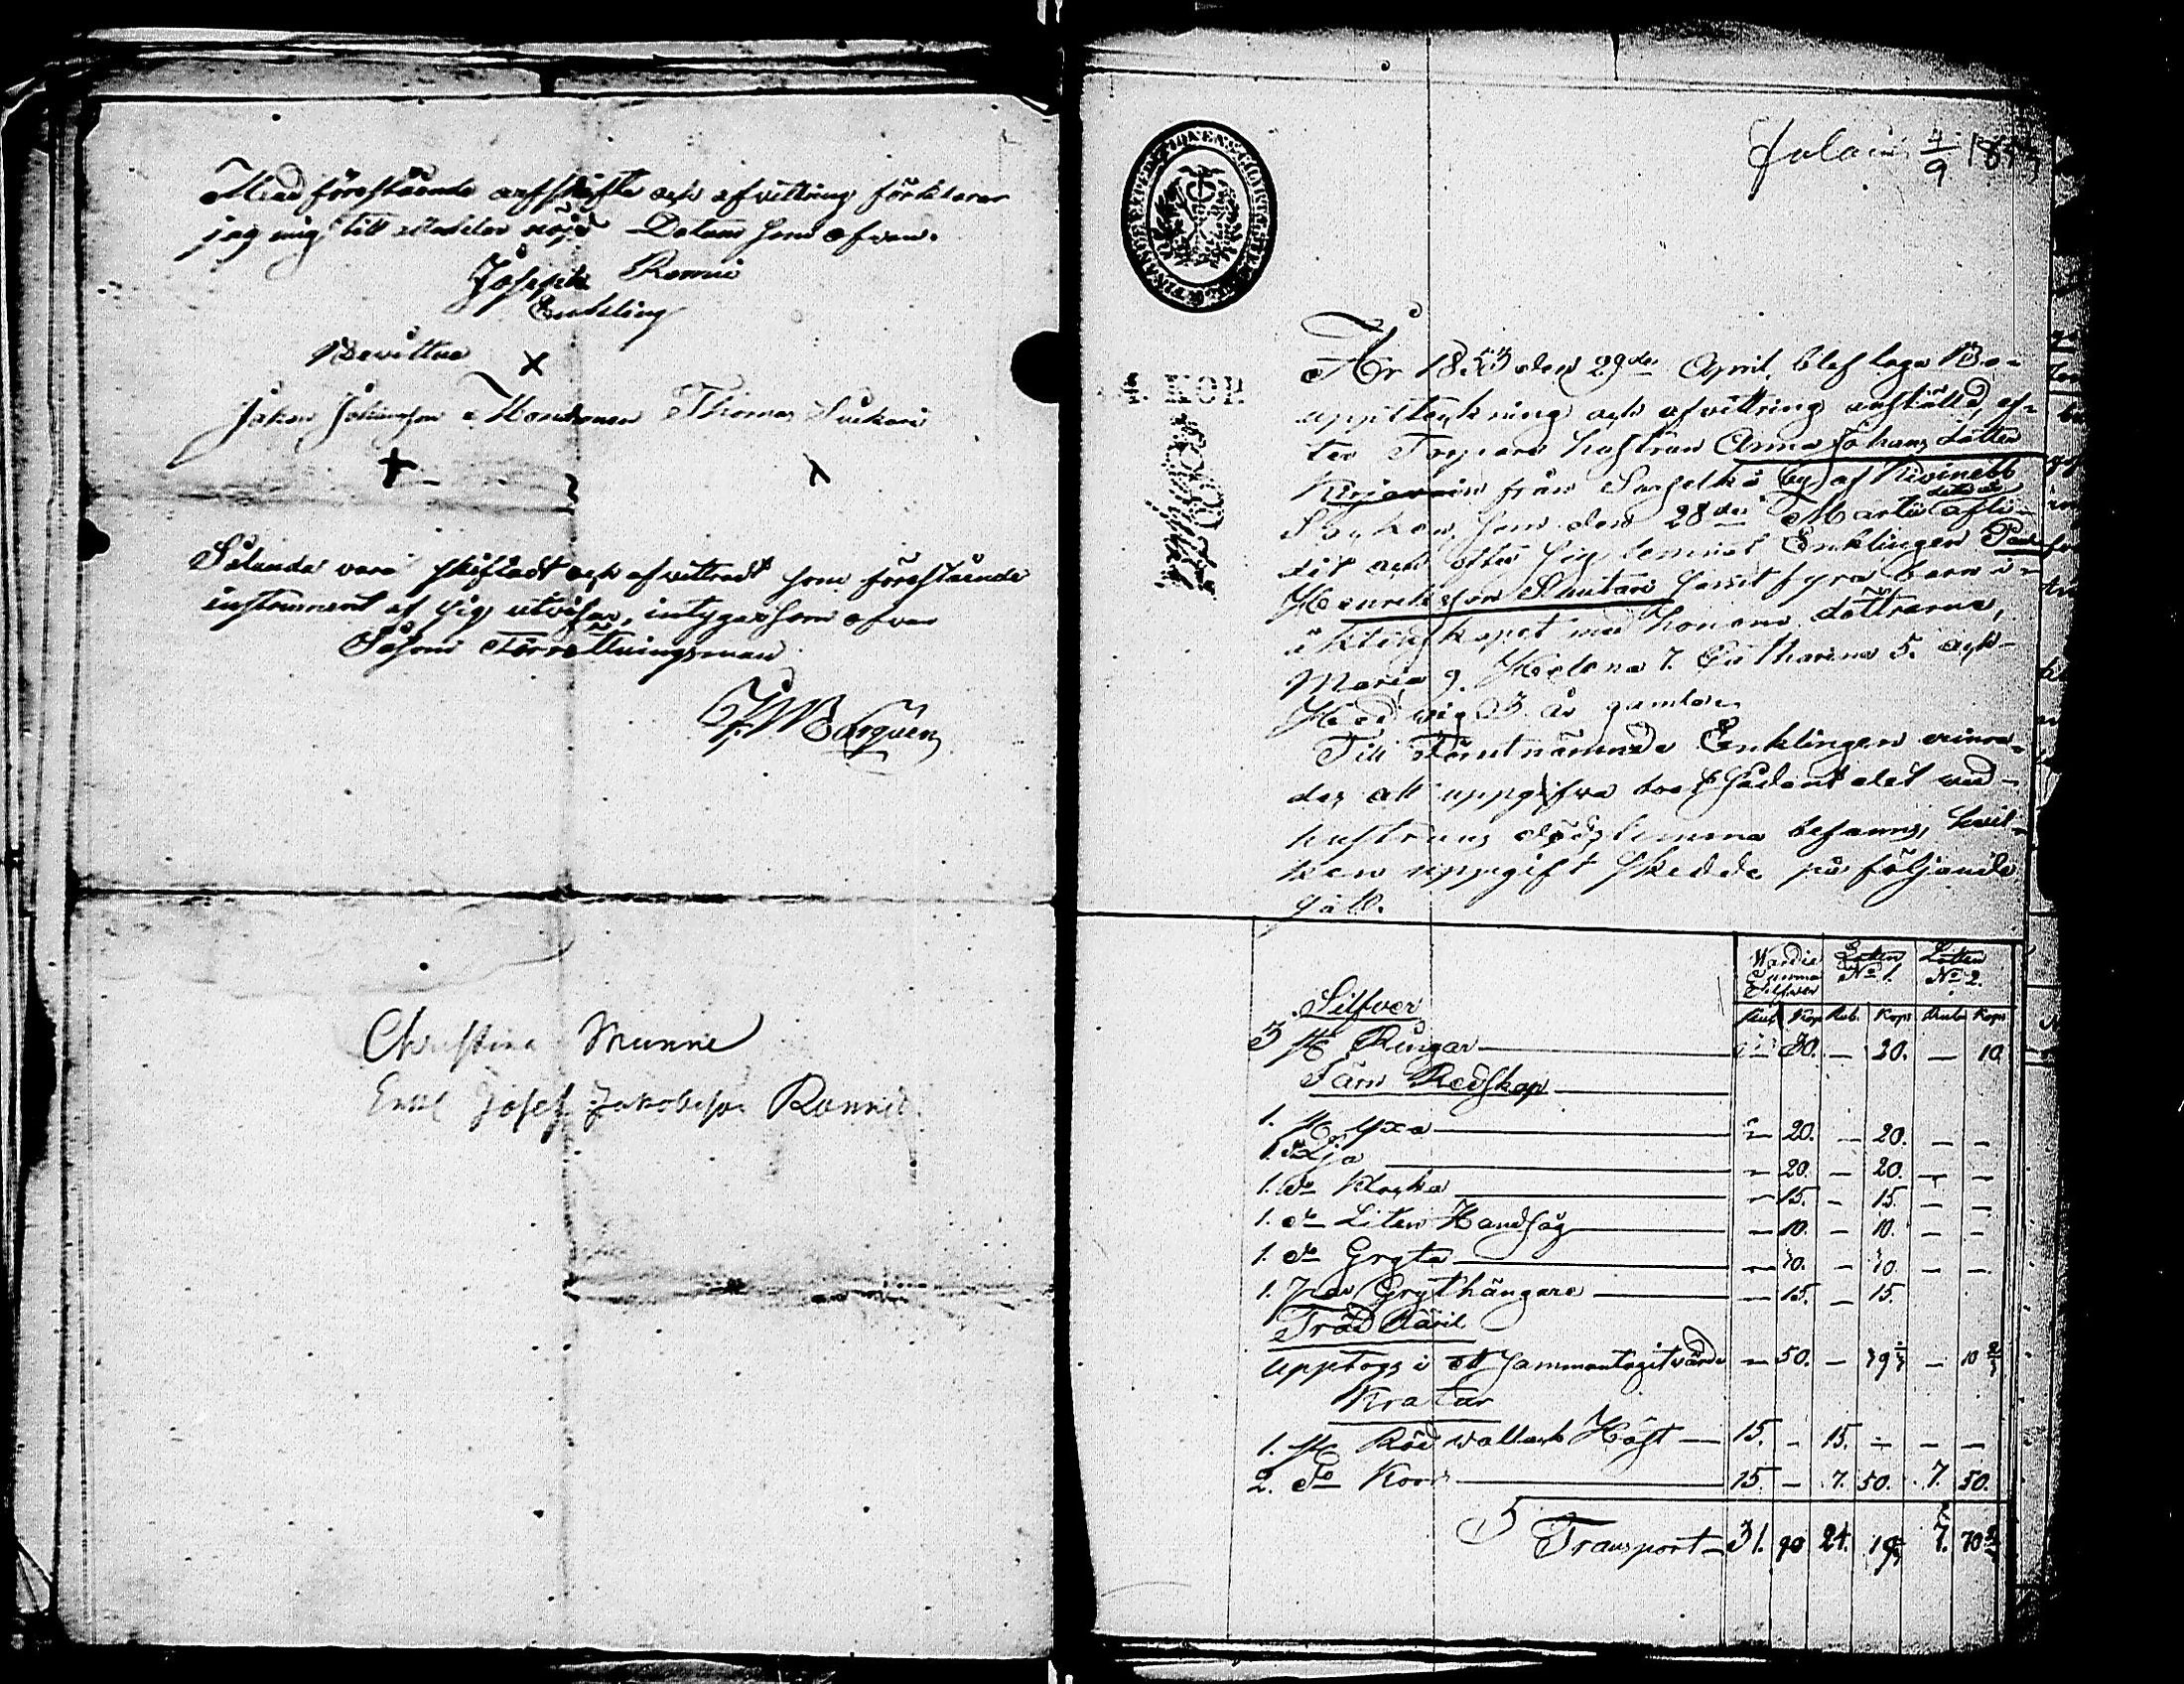 Med förestående arfskifte och afvittring förklarar
jag mig till alla delar nöjd Datum som ofvan.
Joseph Ronni
Enkling
Bevittna
Jakob Johansson Thomas
Sålunda vara skiftadt och afvittradt som förestående
instrument af sig utvisar, intygar som ofvan
Såsom Förrättningsman
Christina Munne
Josef Jakobsson Ronni
4 KOP
År 1853 den 29de April blef laga Bo-
uppteckning och afvittring anställd ef-
ter Torpare hustrun Anna Johans dotter
från by af
Socken, som den 28de Martii afli-
dit och efter sig lemnat Enklingen
Henriksson samt fyra barn i
äktenskapet med honom döttrarna,
Maria 9. Helena 7. Catharina 5. och
Hedvig 3 år gamla.
Till Förutnämnde Enklingen erinra-
des att uppgifva boet sådant det wid
hustruns dödstimma befanns, hvil-
ken uppgift skedde på följande
sätt.
Wärdie Summa Silfver Lotten No 1. Lotten No 2.
Rub Kop Rub. Kop Rub Kop
Silfver
3 st Ringar 30. — 20. — 10
Järn Redskap
1. st Yxa — 20. — 20. — —
1. do Lja — 20. — 20. — —
1. do Klocka — 15. — 15. — —
1. do Liten Handsåg — 10. — 10. — —
1. do Gryta — — — —
1. Grythängare — 15. — 15.
Träd Käril
upptogs i ett sammantagit värde — 50. —
Kreatur
1. st Röd wallack Häst 15. — 15. — — —
2. do Koor 15. — 7. 50. 7. 50.
Transport 31. 90 24. 7.